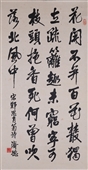 花開不并百花叢獨
立疏籬趣未窮寧可
枝頭抱香死何曾吹
落北風中